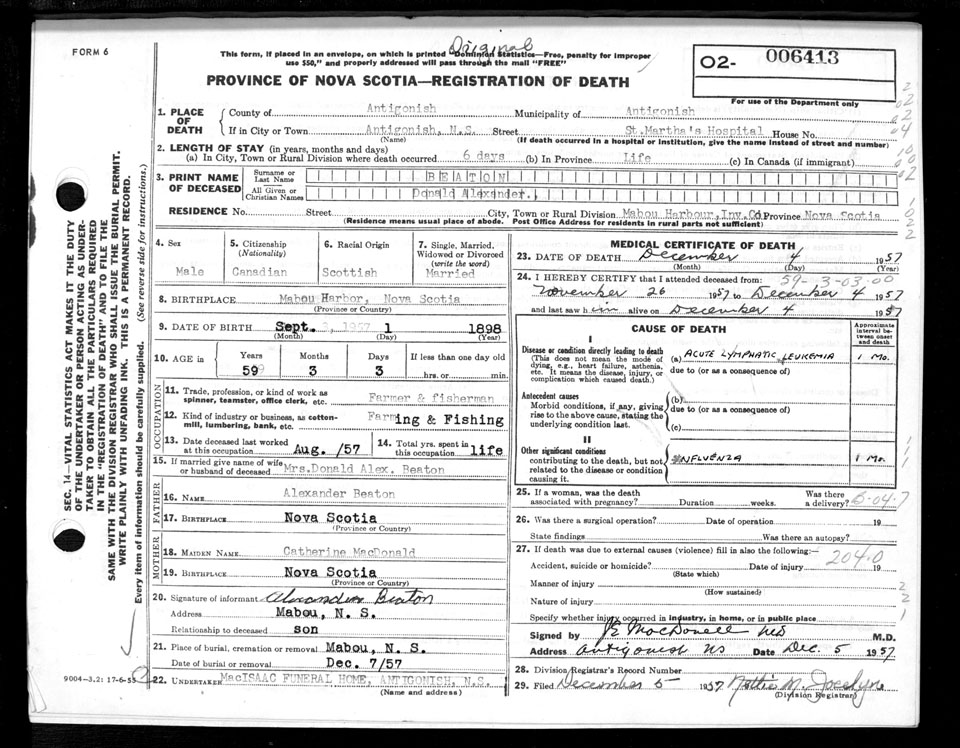 FORM 6
Original
This form, if placed in an envelope, on which is printed "Dominion Statistics—Free, penalty for improper
use $50," and properly addressed will pass through the mail "FREE"
PROVINCE OF NOVA SCOTIA—REGISTRATION OF DEATH
O2- 006413
For use of the Department only
1. PLACE OF DEATH
County of Antigonish Municipality of Antigonish
If in City or Town Antigonish, N.S. Street St.Martha's Hospital House No.
(Name) (If death occurred in a hospital or institution, give the name instead of street and number)
2. LENGTH OF STAY (in years, months and days)
(a) In City, Town or Rural Division where death occurred 6 days (b) In Province Life (c) In Canada (if immigrant)
3. PRINT NAME OF DECEASED
Surname or Last Name BEATON
All Given or Christian Names Donald Alexander.
RESIDENCE No. Street City, Town or Rural Division Mabou Harbour, Inv. Co. Province Nova Scotia
(Residence means usual place of abode. Post Office Address for residents in rural parts not sufficient)
4. Sex Male
5. Citizenship (Nationality) Canadian
6. Racial Origin Scottish
7. Single, Married, Widowed or Divorced (write the word) Married
8. BIRTHPLACE Mabou Harbor, Nova Scotia
(Province or Country)
9. DATE OF BIRTH Sept. 1 1898
(Month) (Day) (Year)
10. AGE in Years Months Days If less than one day old
59 3 3 hrs. or min.
OCCUPATION
11. Trade, profession, or kind of work as spinner, teamster, office clerk, etc. Farmer & fisherman
12. Kind of industry or business, as cotton-mill, lumbering, bank, etc. Farming & Fishing
13. Date deceased last worked at this occupation Aug. /57
14. Total yrs. spent in this occupation life
15. If married give name of wife or husband of deceased Mrs.Donald Alex. Beaton
FATHER
16. NAME Alexander Beaton
17. BIRTHPLACE Nova Scotia
(Province or Country)
MOTHER
18. MAIDEN NAME Catherine MacDonald
19. BIRTHPLACE Nova Scotia
(Province or Country)
20. Signature of informant Alexander Beaton
Address Mabou, N. S.
Relationship to deceased son
21. Place of burial, cremation or removal Mabou, N. S.
Date of burial or removal Dec. 7/57
22. UNDERTAKER MacISAAC FUNERAL HOME, ANTIGONISH, N.S.
(Name and address)
9004-3.2: 17-6-55
MEDICAL CERTIFICATE OF DEATH
23. DATE OF DEATH December 4 1957
(Month) (Day) (Year)
59-3-03.00
24. I HEREBY CERTIFY that I attended deceased from:
November 26 1957 to December 4 1957
and last saw him alive on December 4 1957
CAUSE OF DEATH
Approximate interval between onset and death
I
Disease or condition directly leading to death (a) ACUTE LYMPHATIC LEUKEMIA 1 MO.
(This does not mean the mode of dying, e.g., heart failure, asthenia, etc. It means the disease, injury, or complication which caused death.)
due to (or as a consequence of)
Antecedent causes (b)
Morbid conditions, if any, giving rise to the above cause, stating the underlying condition last.
due to (or as a consequence of)
(c)
II
Other significant conditions
contributing to the death, but not related to the disease or condition causing it.
INFLUENZA 1 MO.
25. If a woman, was the death associated with pregnancy? Duration weeks. Was there a delivery?
26. Was there a surgical operation? Date of operation 19
State findings Was there an autopsy?
27. If death was due to external causes (violence) fill in also the following:— 204.0
Accident, suicide or homicide? Date of injury 19
(State which)
Manner of injury
(How sustained)
Nature of injury
Specify whether injury occurred in industry, in home, or in public place
Signed by MacDonell M.D.
Address Antigonish NS Date Dec. 5 1957
28. Division Registrar's Record Number
29. Filed December 5 1957
(Division Registrar)
SEC. 14—VITAL STATISTICS ACT MAKES IT THE DUTY
OF THE UNDERTAKER OR PERSON ACTING AS UNDER-
TAKER TO OBTAIN ALL THE PARTICULARS REQUIRED
IN THE "REGISTRATION OF DEATH" AND TO FILE THE
SAME WITH THE DIVISION REGISTRAR WHO SHALL ISSUE THE BURIAL PERMIT.
WRITE PLAINLY WITH UNFADING INK. THIS IS A PERMANENT RECORD.
Every item of information should be carefully supplied. (See reverse side for instructions.)